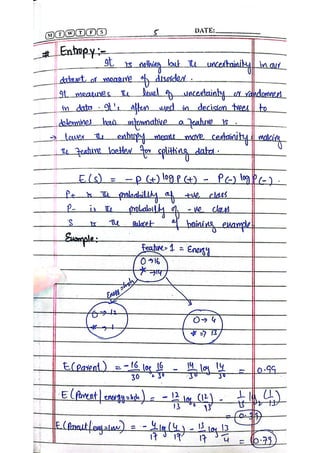 M T W T F S
5
DATE:
* Entropy :-
It is nothing but the uncertainity in our
dataset or measure of disorder.
It measures the level of uncertainty or randomness
in data. It's often used in decision trees to
determines how informative a feature is.
→ lower the entropy means more certainity, making
the feature better for splitting data.
E(S) = - P(+) log P(+) - P(-) log P(-).
P+ is the probability of +ve class
P- is the probability of -ve class
S is the subset of training example
Example:
Feature 1 = Energy
O → 16
* → 14
Energy = high
O → 12
* → 1
O → 4
* → 13
E(Parent) = -16/30 log 16/30 - 14/30 log 14/30 = 0.99
E(Parent/energy=high) = - 12/13 log (12/13) - 1/13 log2 (1/13)
= 0.39
E(Parent/eng=low) = - 4/17 log (4/17) - 13/17 log 13/4 = 0.79